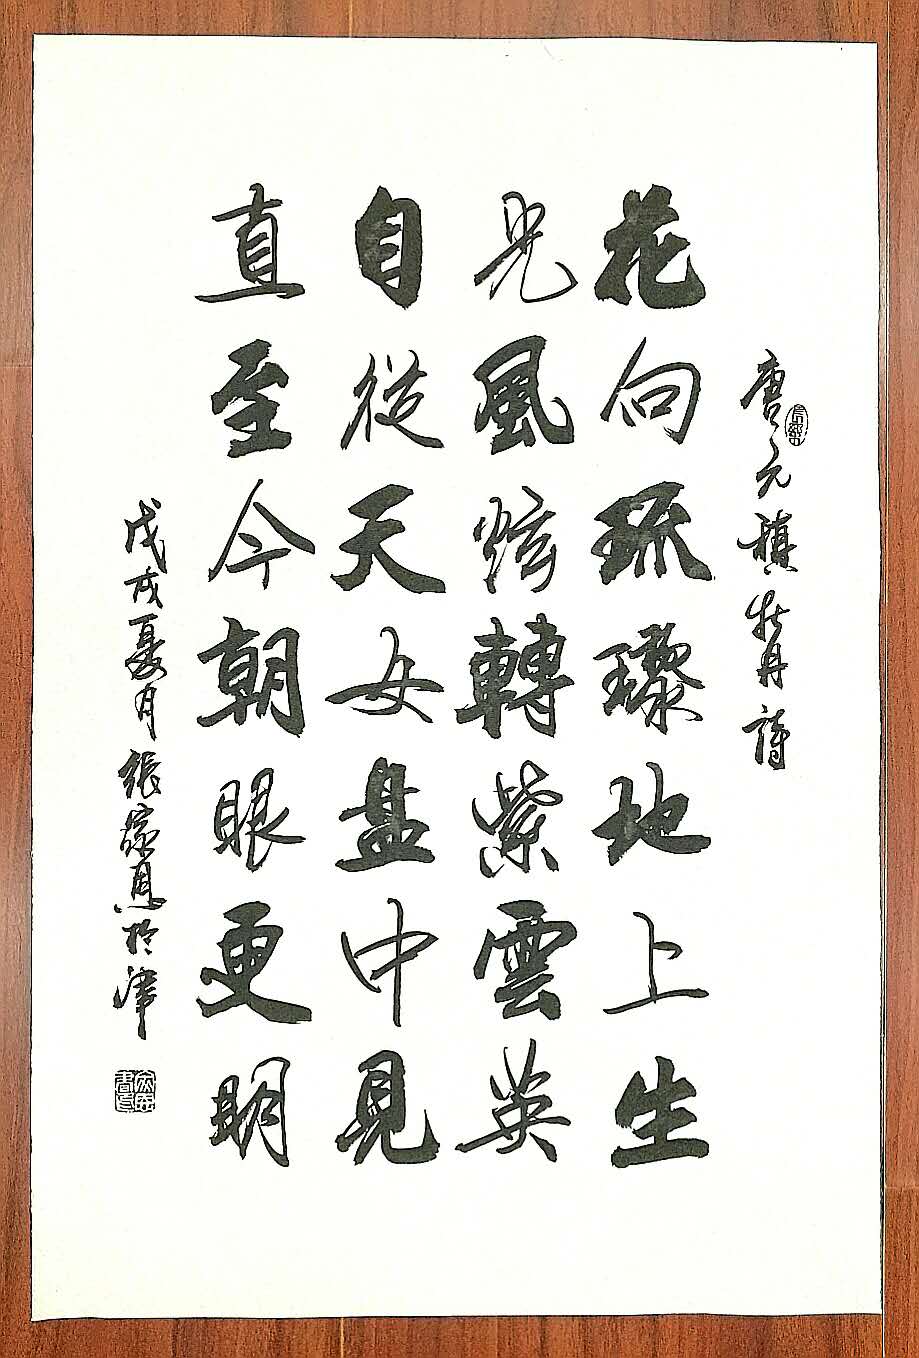 唐元稹牡丹詩
花向琉璃地上生
光風炫轉紫雲英
自從天女盘中見
直至今朝眼更明
戊戌夏月張家恩於津